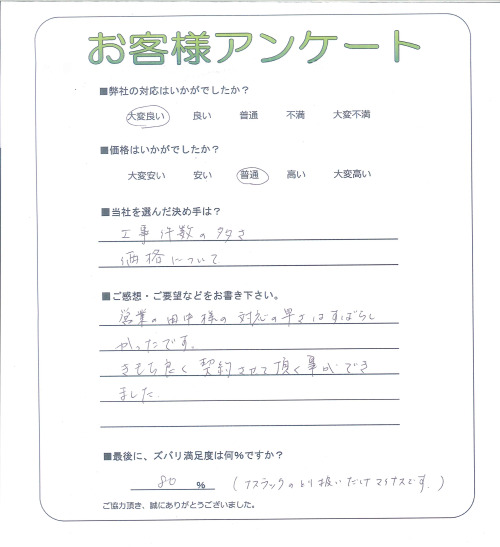 お客様アンケート
■弊社の対応はいかがでしたか?
大変良い 良い 普通 不満 大変不満
■価格はいかがでしたか?
大変安い 安い 普通 高い 大変高い
■当社を選んだ決め手は?
工事件数の多さ
価格について
■ご感想・ご要望などをお書き下さい。
営業の田中様の対応の早さはすばらし
かったです。
きもち良く契約させて頂く事ができ
ました
■最後に、ズバリ満足度は何%ですか?
80 % (アスラックのとり扱いだけマイナスです。)
ご協力頂き、誠にありがとうございました。